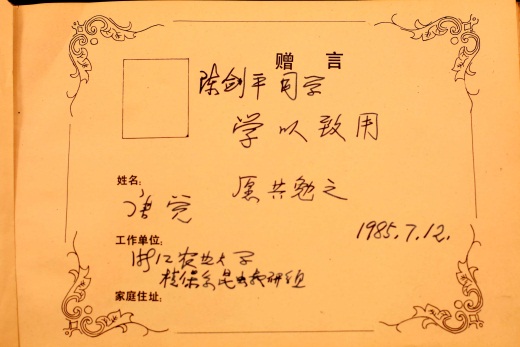 赠 言
陈剑平同学
学以致用
愿共勉之
姓名：
唐觉
1985.7.12.
工作单位：
浙江农业大学
植保系昆虫教研组
家庭住址：